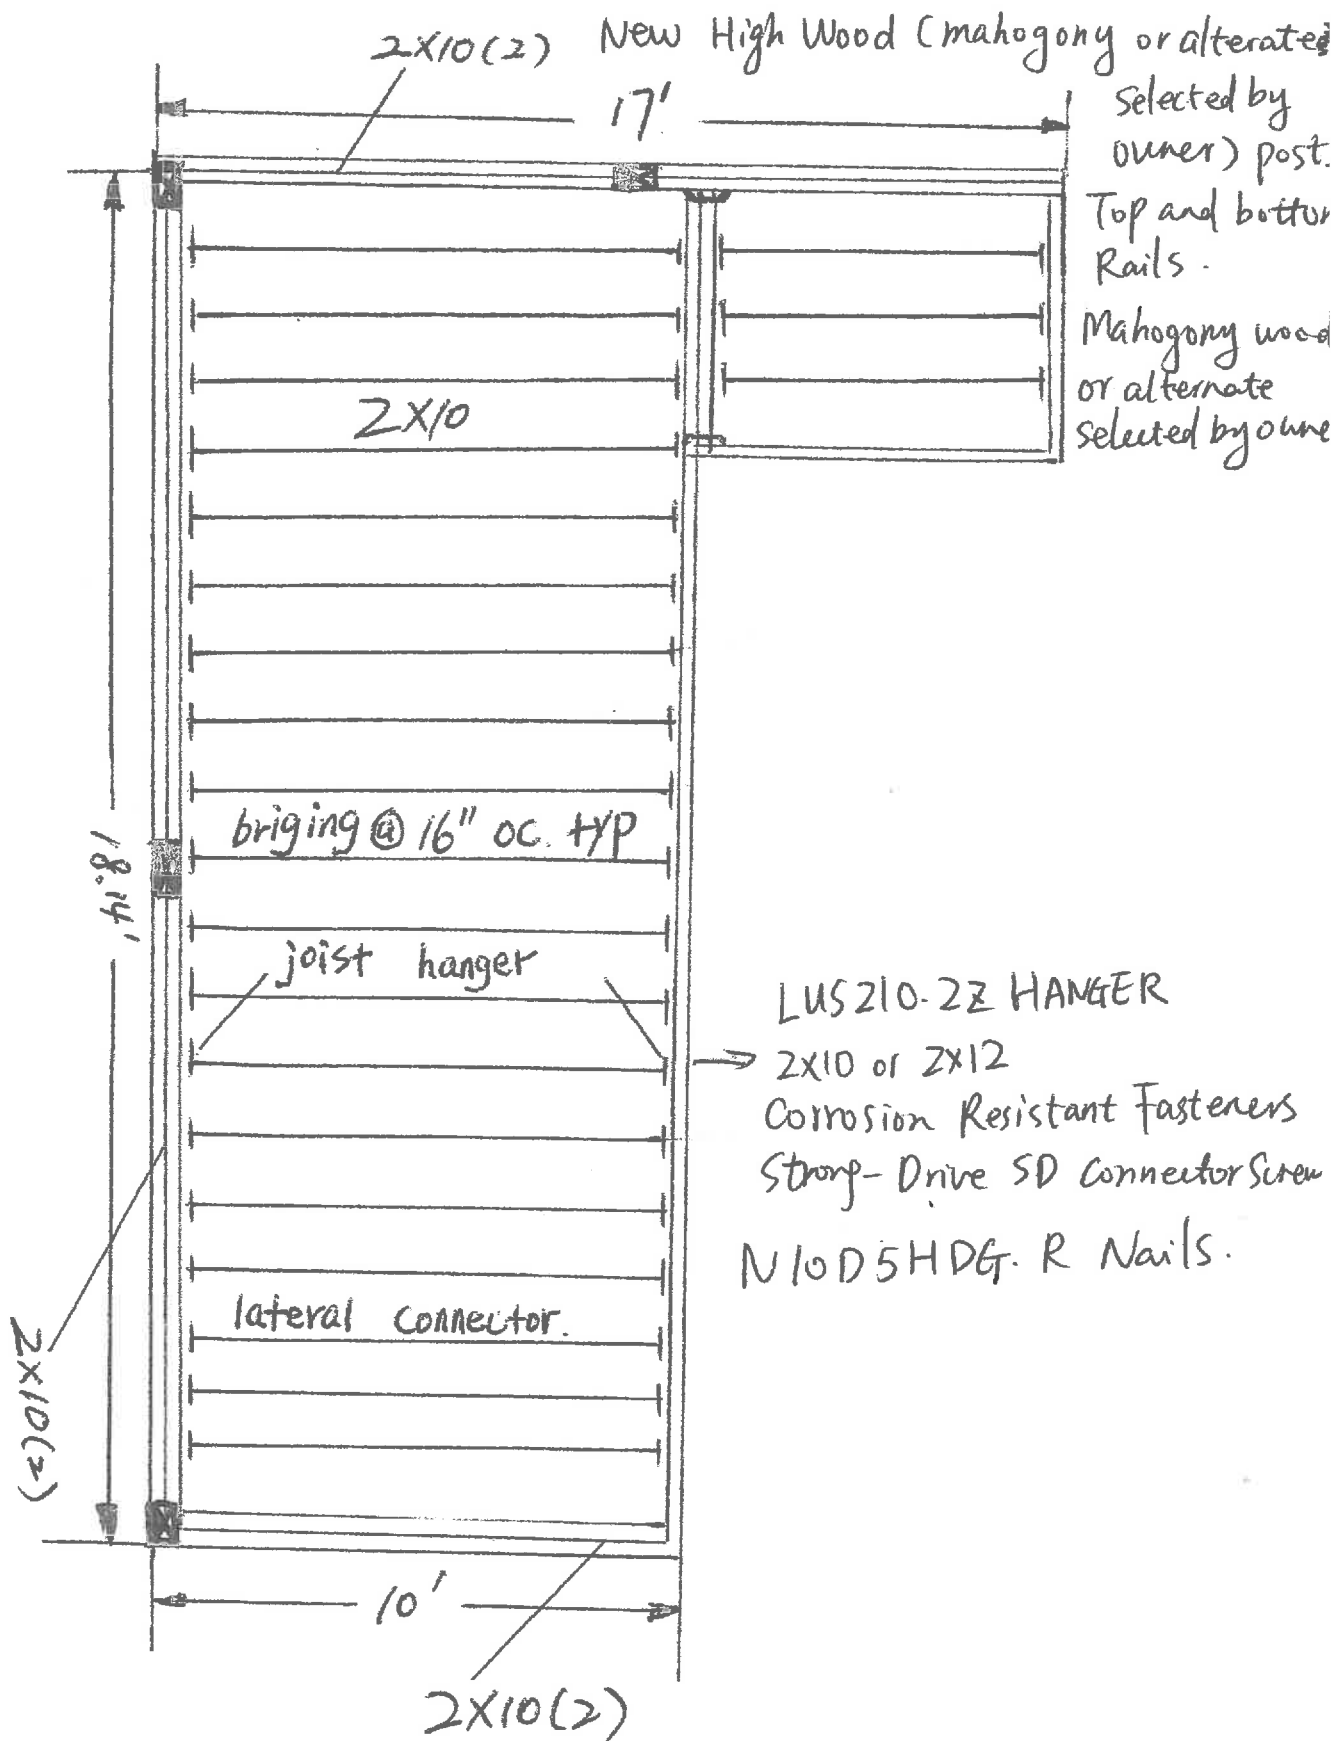 2X10(2)
New High Wood (mahogony or alterated
selected by
owner) post.
17'
Top and bottom
Rails.
Mahogony wood
or alternate
selected by owne
2X10
briging @ 16" oc. typ
18.14'
joist hanger
LUS210-2Z HANGER
2X10 or 2X12
Corrosion Resistant Fasteners
Strong-Drive SD Connector Screw
N10D5HDG-R Nails.
lateral connector.
2X10(2)
10'
2X10(2)